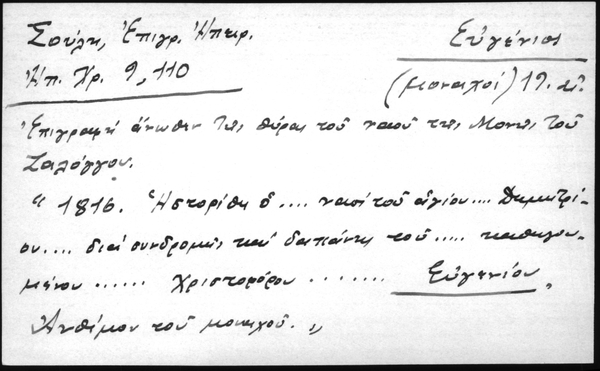 Σούλη, Ἐπιγρ. Ἠπειρ.
Εὐγένιος
Ἠπ. Χρ. 9, 110
(μοναχοί) 19. αἰ.
Ἐπιγραφή ἄνωθεν τῆς θύρας τοῦ ναοῦ τῆς Μονῆς τοῦ
Ζαλόγγου.
"1816. Ἡστορίθη ὁ .... ναός τοῦ ἁγίου .... Δημητρί-
ου.... διά συνδρομῆς καί δαπάνης τοῦ ..... καθηγου-
μένου ...... Χριστοφόρου ........ Εὐγενίου,
Ἀνθίμου τοῦ μοναχοῦ. "